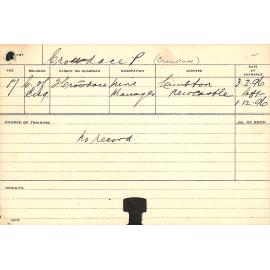 Crossdace P (Crowdace)
AGE RELIGION PARENT OR GUARDIAN OCCUPATION ADDRESS DATE OF ENTRANCE
17 C. of J Crowdace Mine Lambton 3.2.96
Eng Manager Newcastle left
1.12.96
COURSE OF TRAINING NO. OF ROOM
No record
RESULTS